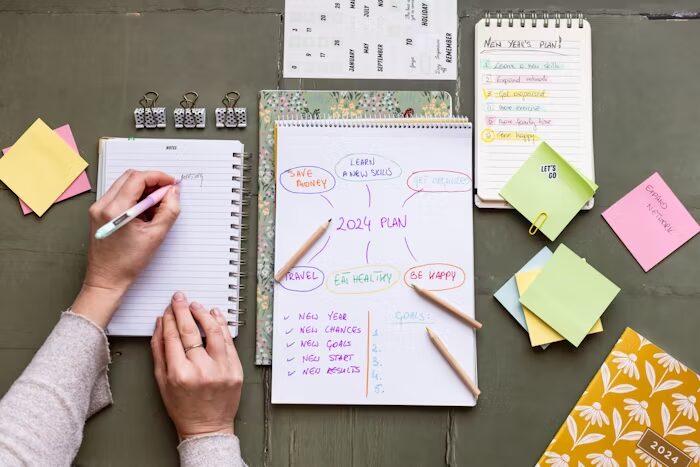 JANUARY
MAY
SEPTEMBER
TO
HOLIDAY
REMEMBER
NEW YEAR'S PLAN!
1. Learn a new skills
2. Expand network
Get organized
more exercise
more family
happy
LET'S
GO
EXPAND
NETWORK
NOTES
SAVE
MONEY
LEARN
A NEW SKILLS
GET ORGANIZED
2024 PLAN
TRAVEL
EAT HEALTHY
BE HAPPY
✓ NEW YEAR
✓ NEW CHANCES
✓ NEW GOALS
✓ NEW START
✓ NEW RESULTS
GOALS:
1.
2.
3.
4.
5.
2024